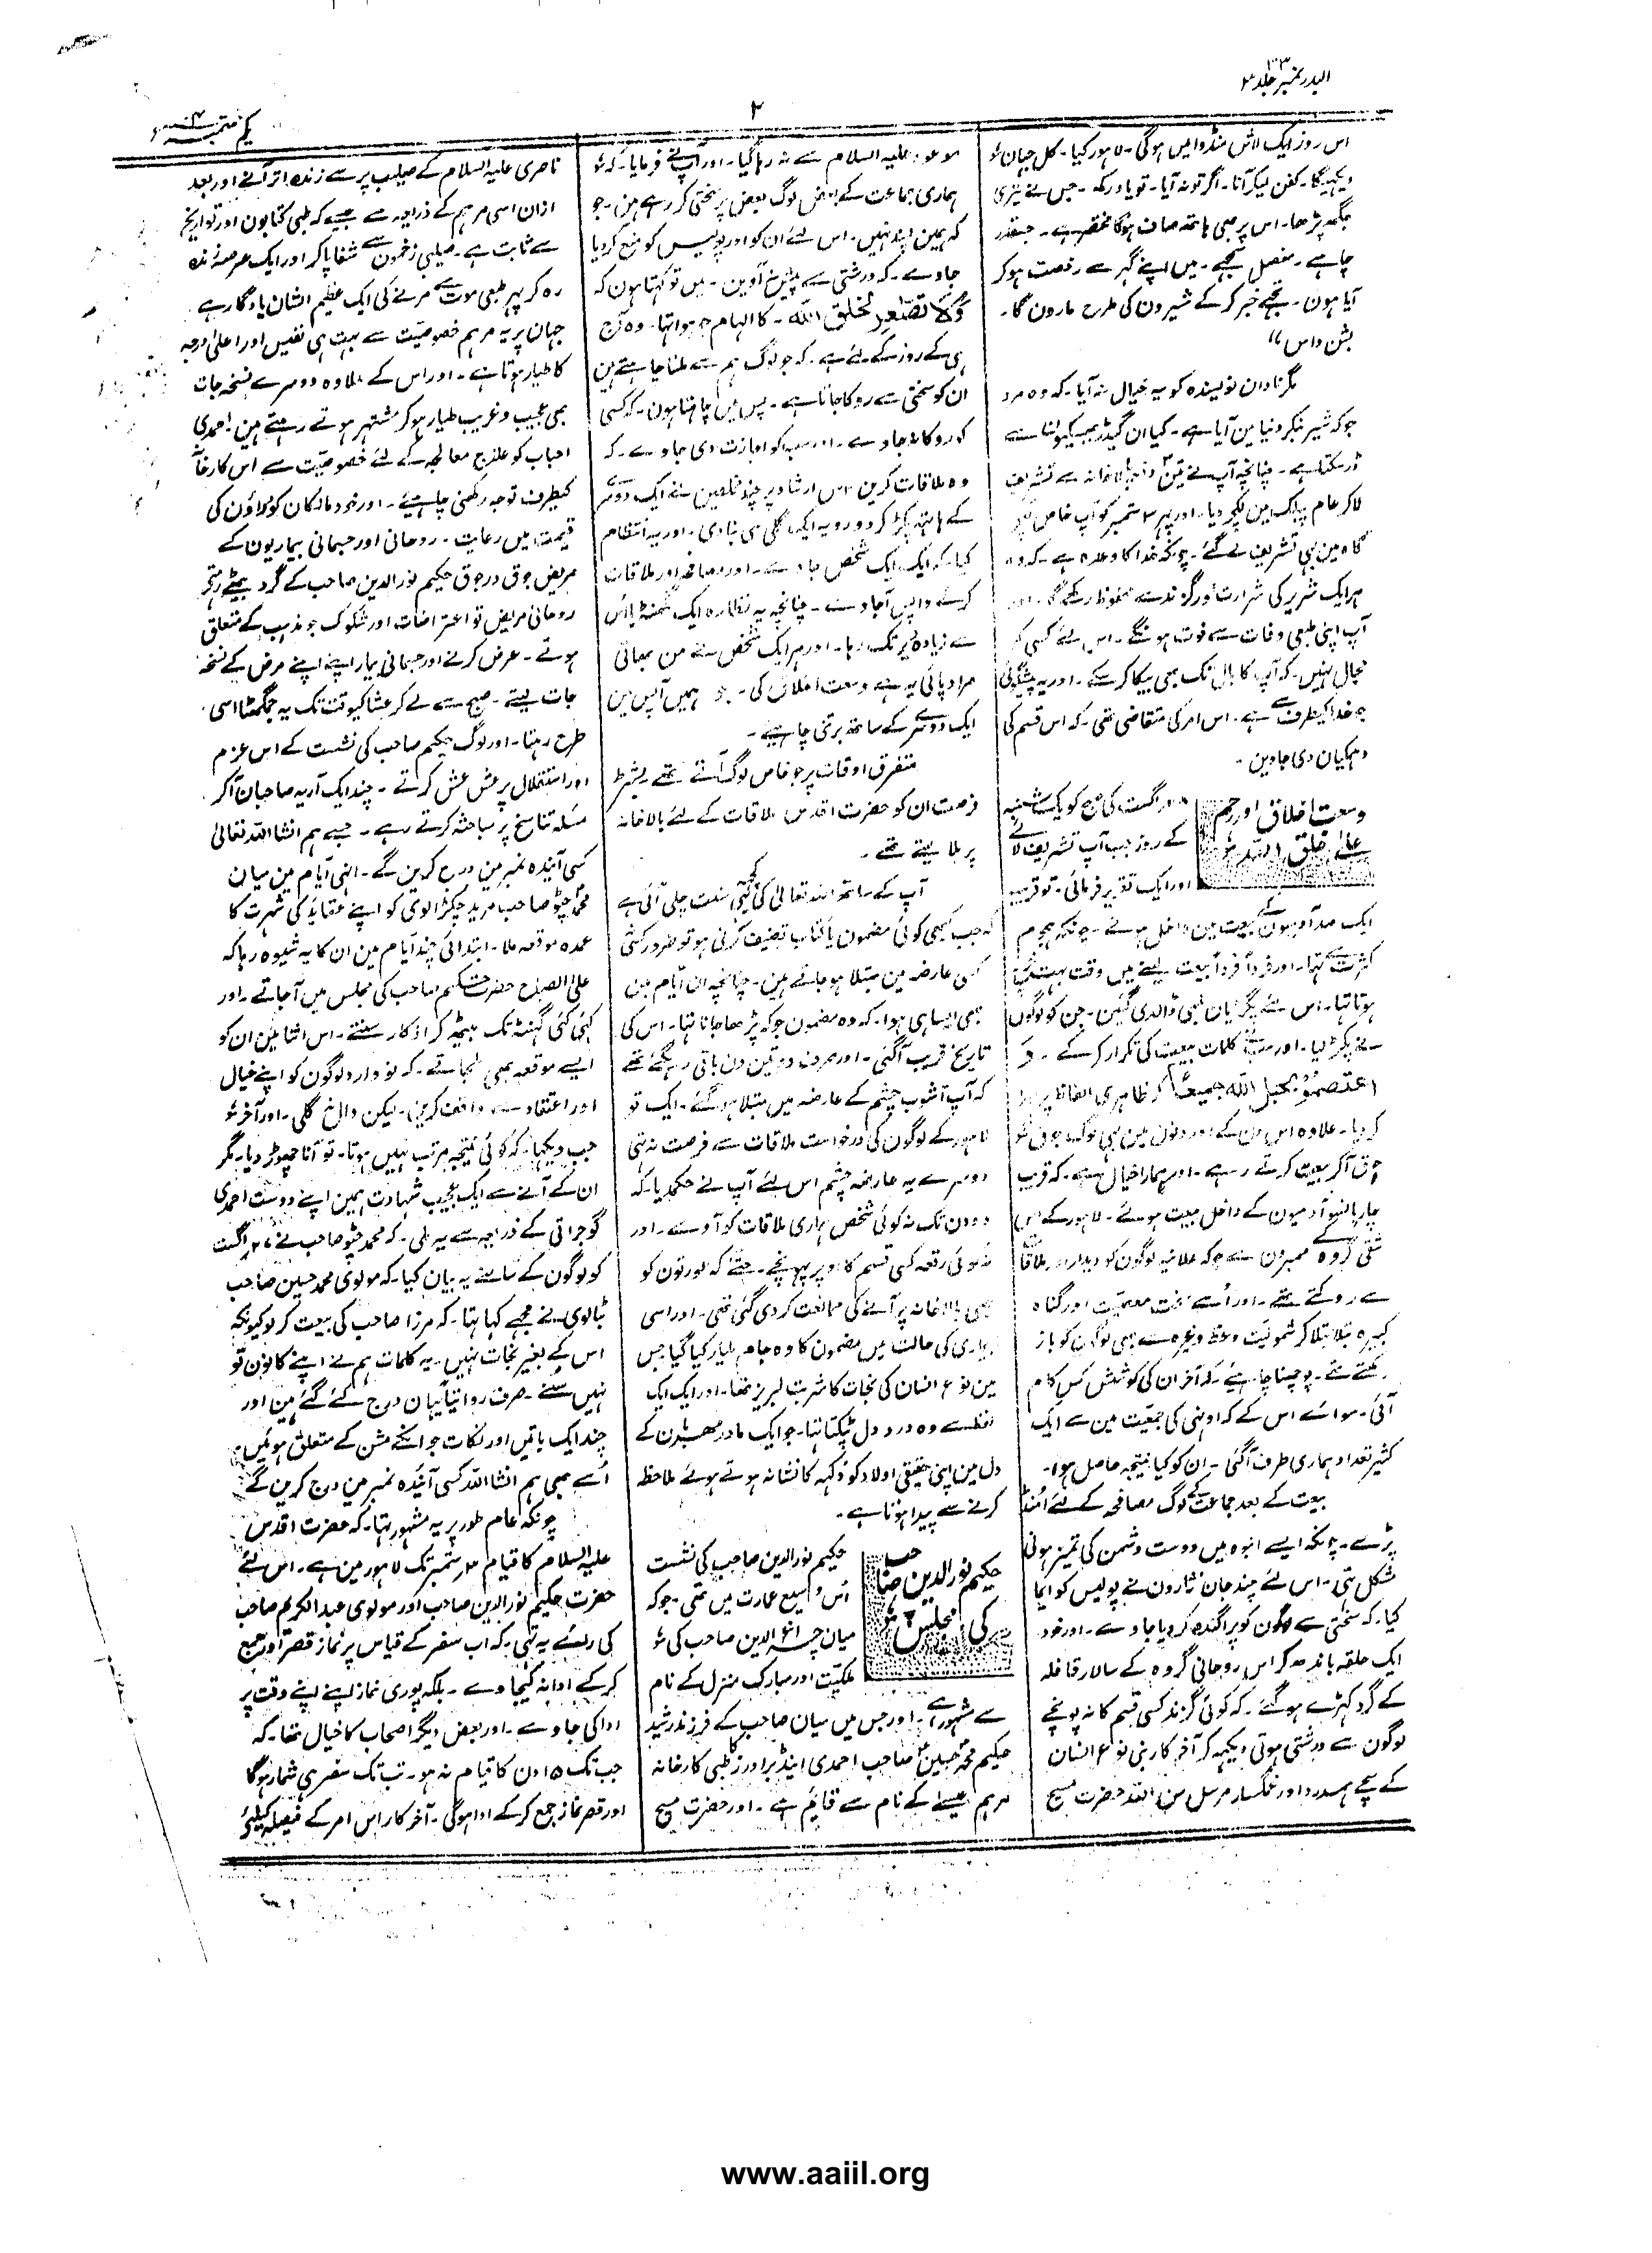 البدر نمبر ۳۳ جلد ۳
۲
یکم ستمبر
اس روز ایک لاش منڈوا میں ہوگی۔ لاہور کیا۔ کل جہان
دیکہیگا۔ کفن لیکر آنا۔ اگر تو نہ آیا۔ تو یاد رکھ۔ جس نے تیری
جگہ پڑھا۔ اس پر بھی ہاتھ صاف ہوگا مختصر ہے۔ جسقدر
چاہے۔ مفصل سمجھے۔ میں اپنے گہر سے رخصت ہو کر
آیا ہون۔ تجھے خبر کر کے شیرون کی طرح مارون گا۔
بشن داس"
مگر نادان نویسندہ کو یہ خیال نہ آیا۔ کہ وہ مرد
جو کہ شیر بنکر دنیا مین آیا ہے۔ کیا ان گیدڑ بھبکیو سے
ڈر سکتا ہے۔ چنانچہ آپ نے تین دفعہ بالاخانہ سے تشریف
لا کر عام پبلک مین لیکچر دیا۔ اور پہر ۳ ستمبر کو آپ خاص لیکچر
گاہ مین بہی تشریف لے گئے۔ چونکہ خدا کا وعدہ ہے۔ کہ وہ
ہر ایک شریر کی شرارت اور گزند سے محفوظ رکھے گا۔ اور
آپ اپنی طبعی وفات سے فوت ہونگے۔ اس لئے کسی کی
مجال نہیں۔ کہ آپ کا بال تک بھی بیکا کر سکے۔ اور یہ پیشگوئی
جو خدا کیطرف سے ہے۔ اس امر کی متقاضی تھی۔ کہ اس قسم کی
دہمکیان دی جاوین۔
وسعت اخلاق اور رحم
علیٰ خلق اللہ
۲۸ اگست کی صبح کو یکشنبہ
کے روز جب آپ تشریف لائے
اور ایک تقریر فرمائی۔ تو قریب
ایک صد آدمیون کے بیعت مین داخل ہوئے۔ چونکہ ہجوم
کثرت سے تہا۔ اور فرداً فرداً بیعت لینے میں وقت بہت خرچ
ہوتا تہا۔ اس لئے پگڑیان بھی ڈالدی گئین۔ جن کو لوگوں
نے پکڑ لیا۔ اور سب نے کلمات بیعت کی تکرار کر کے۔ وَ
اعْتَصِمُوْا بِحَبْلِ اللہ جَمِیْعًا کو ظاہری الفاظ پر پورا
کر دیا۔ علاوہ اس دن کے اور دنون مین بہی لوگ جوق در
جوق آکر بیعت کرتے رہے۔ اور ہمارا خیال ہے۔ کہ قریب
چار پانسو آدمیون کے داخل بیعت ہوئے۔ لاہور کے اس
شقی گروہ کے ممبرون سے جو کہ علانیہ لوگون کو دیدار اور ملاقات
سے روکتے تھے۔ اور اُسے سخت معصیت اور گناہ
کبیرہ بتلا بتلا کر شمولیت وعظ وغیرہ سے بہی لوگون کو باز
رکھتے تھے۔ پوچھنا چاہیئے۔ کہ آخر ان کی کوشش کس کام
آئی۔ سوائے اس کے کہ اونہی کی جمعیت مین سے ایک
کثیر تعداد ہماری طرف آگئی۔ ان کو کیا نتیجہ حاصل ہوا۔
بیعت کے بعد جماعت کے لوگ مصافحہ کے لئے اُمنڈ
پڑے۔ چونکہ ایسے انبوہ میں دوست دشمن کی تمیز ہونی
مشکل تہی۔ اس لئے چند جان نثارون نے پولیس کو ایما
کیا۔ کہ سختی سے لوگون کو پراگندہ کر دیا جاوے۔ اور خود
ایک حلقہ باندھ کر اس روحانی گروہ کے سالار قافلہ
کے گرد کہڑے ہو گئے۔ کہ کوئی گزند کسی قسم کا نہ پہونچے
لوگون سے درشتی ہوتی دیکہہ کر آخر کار بنی نوع انسان
کے سچے ہمدرد اور غمگسار مرسل من اللہ حضرت مسیح
موعود علیہ السلام سے نہ رہا گیا۔ اور آپ نے فرمایا۔ کہ
ہماری جماعت کے بعض لوگ بعض پر سختی کر رہے ہین۔ جو
کہ ہمین پسند نہیں۔ اس لئے ان کو اور پولیس کو منع کر دیا
جاوے۔ کہ درشتی سے پیش نہ آوین۔ میں تو کہتا ہون کہ
وَلَا تُصَعِّرْ لِخَلْقِ اللہ۔ کا الہام جو ہوا تہا۔ وہ آج
ہی کے روز کے لئے ہے۔ کہ جو لوگ ہم سے ملنا چاہتے ہین
ان کو سختی سے روکا جاتا ہے۔ پس میں چاہتا ہون۔ کہ کسی
کو روکا نہ جاوے۔ اور سب کو اجازت دی جاوے۔ کہ
وہ ملاقات کرین۔ اس ارشاد پر چند مخلصین نے ایک دوسرے
کے ہاتھ پکڑ کر دو رویہ ایک گلی سی بنا دی۔ اور یہ انتظام
کیا۔ کہ ایک ایک شخص جاوے۔ اور مصافحہ اور ملاقات
کر کے واپس آجاوے۔ چنانچہ یہ نظارہ ایک گھنٹہ یا اس
سے زیادہ دیر تک رہا۔ اور ہر ایک شخص نے من بھاتی
مراد پائی یہ ہے وسعت اخلاق کی۔ جو ہمیں آپس مین
ایک دوسرے کے ساتھ برتنی چاہیے۔
متفرق اوقات پر جو خاص لوگ آتے تھے بشرط
فرصت ان کو حضرت اقدس ملاقات کے لئے بالاخانہ
پر بلا لیتے تھے۔
آپ کے ساتھ اللہ تعالیٰ کی یہی سنت چلی آئی ہے
کہ جب کبھی کوئی مضمون یا کتاب تصنیف کرنی ہو تو ضرور کسی
کسی عارضہ مین مبتلا ہو جاتے ہین۔ چنانچہ ان ایام مین
بھی ایسا ہی ہوا۔ کہ وہ مضمون جو کہ پڑھا جانا تہا۔ اس کی
تاریخ قریب آگئی۔ اور صرف دو تین دن باقی رہ گئے تھے
کہ آپ آشوب چشم کے عارضہ میں مبتلا ہو گئے۔ ایک تو
لاہور کے لوگون کی درخواست ملاقات سے فرصت نہ تہی
دوسرے یہ عارضہ چشم اس لئے آپ نے حکم دیا۔ کہ
دو دن تک نہ کوئی شخص ہماری ملاقات کو آوے۔ اور
نہ کوئی رقعہ کسی قسم کا اوپر پہنچے۔ حتےٰ کہ عورتون کو
بھی بالاخانہ پر آنے کی ممانعت کر دی گئی تھی۔ اور اسی
بیماری کی حالت میں مضمون کا وہ جام طیار کیا گیا جس
مین نوع انسان کی نجات کا شربت لبریز تھا۔ اور ایک ایک
لفظ سے وہ درد دل ٹپکتا تہا۔ جو ایک مادر مہربان کے
دل مین اپنی حقیقی اولاد کو دُکہہ کا نشانہ ہوتے ہوئے ملاحظہ
کرنے سے پیدا ہوتا ہے۔
حکیم نور الدین صاحب
کی مجلس
حکیم نور الدین صاحب کی نشست
اُس وسیع عمارت میں تھی۔ جو کہ
میان چراغ الدین صاحب کی
ملکیّت اور مبارک منزل کے نام
سے مشہور ہے۔ اور جس میں میان صاحب کے فرزند رشید
حکیم محمد حسین صاحب احمدی اینڈ برادرز کا طبی کارخانہ
مرہم عیسےٰ کے نام سے قائم ہے۔ اور حضرت مسیح
ناصری علیہ السلام کے صلیب پر سے زندہ اتر آنے اور بعد
ازان اسی مرہم کے ذریعہ سے جیسے کہ طبی کتابون اور تواریخ
سے ثابت ہے۔ صلیبی زخمون سے شفا پا کر اور ایک عرصہ زندہ
رہ کر پہر طبعی موت سے مرنے کی ایک عظیم الشان یادگار ہے
جہان پر یہ مرہم خصوصیّت سے بہت ہی نفیس اور اعلیٰ درجہ
کا طیار ہوتا ہے۔ اور اس کے علاوہ دوسرے نسخہ جات
بھی عجیب و غریب طیار ہو کر مشتہر ہوتے رہتے ہین۔ احمدی
احباب کو علاج معالجہ کے لئے خصوصیّت سے اس کارخانہ
کیطرف توجہ رکھنی چاہیئے۔ اور خود مالکان کو دواؤن کی
قیمت میں رعایت۔ روحانی اور جسمانی بیماریون کے
مریض جوق در جوق حکیم نور الدین صاحب کے گرد بیٹھے رہتے
روحانی مریض تو اعتراضات اور شکوک جو مذہب کے متعلق
ہوتے۔ عرض کرتے اور جسمانی بیمار اپنے اپنے مرض کے نسخہ
جات لیتے۔ صبح سے لے کر عشا کیوقت تک یہ جمگھٹا اسی
طرح رہتا۔ اور لوگ حکیم صاحب کی نشست کے اس عزم
اور استقلال پر عش عش کرتے۔ چند ایک آریہ صاحبان آکر
مسئلہ تناسخ پر مباحثہ کرتے رہے۔ جسے ہم انشا اللہ تعالیٰ
کسی آیندہ نمبر مین درج کرین گے۔ انہی ایام مین میان
محمد چٹو صاحب مرید چکڑالوی کو اپنے عقائد کی شہرت کا
عمدہ موقعہ ملا۔ ابتدائی چند ایام مین ان کا یہ شیوہ رہا کہ
علی الصباح حضرت حکیم صاحب کی مجلس میں آجاتے۔ اور
کئی کئی گہنٹہ تک بیٹھ کر اذکار سنتے۔ اس اثنا مین ان کو
ایسے موقعہ بھی مل جاتے۔ کہ نو وارد لوگون کو اپنے خیال
اور اعتقاد سے واقف کرین۔ لیکن دال نہ گلی۔ اور آخر
جب دیکہا۔ کہ کوئی نتیجہ مرتب نہیں ہوتا۔ تو آنا چھوڑ دیا۔ مگر
ان کے آنے سے ایک عجیب شہادت ہمین اپنے دوست احمدی
گوجراتی کے ذریعہ سے یہ ملی۔ کہ محمد چٹو صاحب نے ۲۷ اگست
کو لوگون کے سامنے یہ بیان کیا۔ کہ مولوی محمد حسین صاحب
بٹالوی نے مجھے کہا تہا۔ کہ مرزا صاحب کی بیعت کر لو کیونکہ
اس کے بغیر نجات نہیں۔ یہ کلمات ہم نے اپنے کانون تو
نہیں سنے۔ صرف روایتاً یہان درج کئے گئے ہین اور
چند ایک باتین اور نکات جو انکے مشن کے متعلق ہوئیں
اُسے بھی ہم انشا اللہ کسی آئندہ نمبر مین درج کرین گے
چونکہ عام طور پر یہ مشہور تہا۔ کہ حضرت اقدس
علیہ السلام کا قیام ۳ ستمبر تک لاہور مین ہے۔ اس لئے
حضرت حکیم نور الدین صاحب اور مولوی عبد الکریم صاحب
کی رائے یہ تھی۔ کہ اب سفر کے قیاس پر نماز قصر اور جمع
کر کے ادا نہ کیجاوے۔ بلکہ پوری نماز اپنے اپنے وقت پر
ادا کی جاوے۔ اور بعض دیگر اصحاب کا خیال تھا۔ کہ
جب تک ۱۵ دن کا قیام نہ ہو۔ تب تک سفر ہی شمار ہوگا
اور قصر نماز جمع کر کے ادا ہوگی۔ آخر کار اس امر کے فیصلہ کیلئے
www.aaiil.org